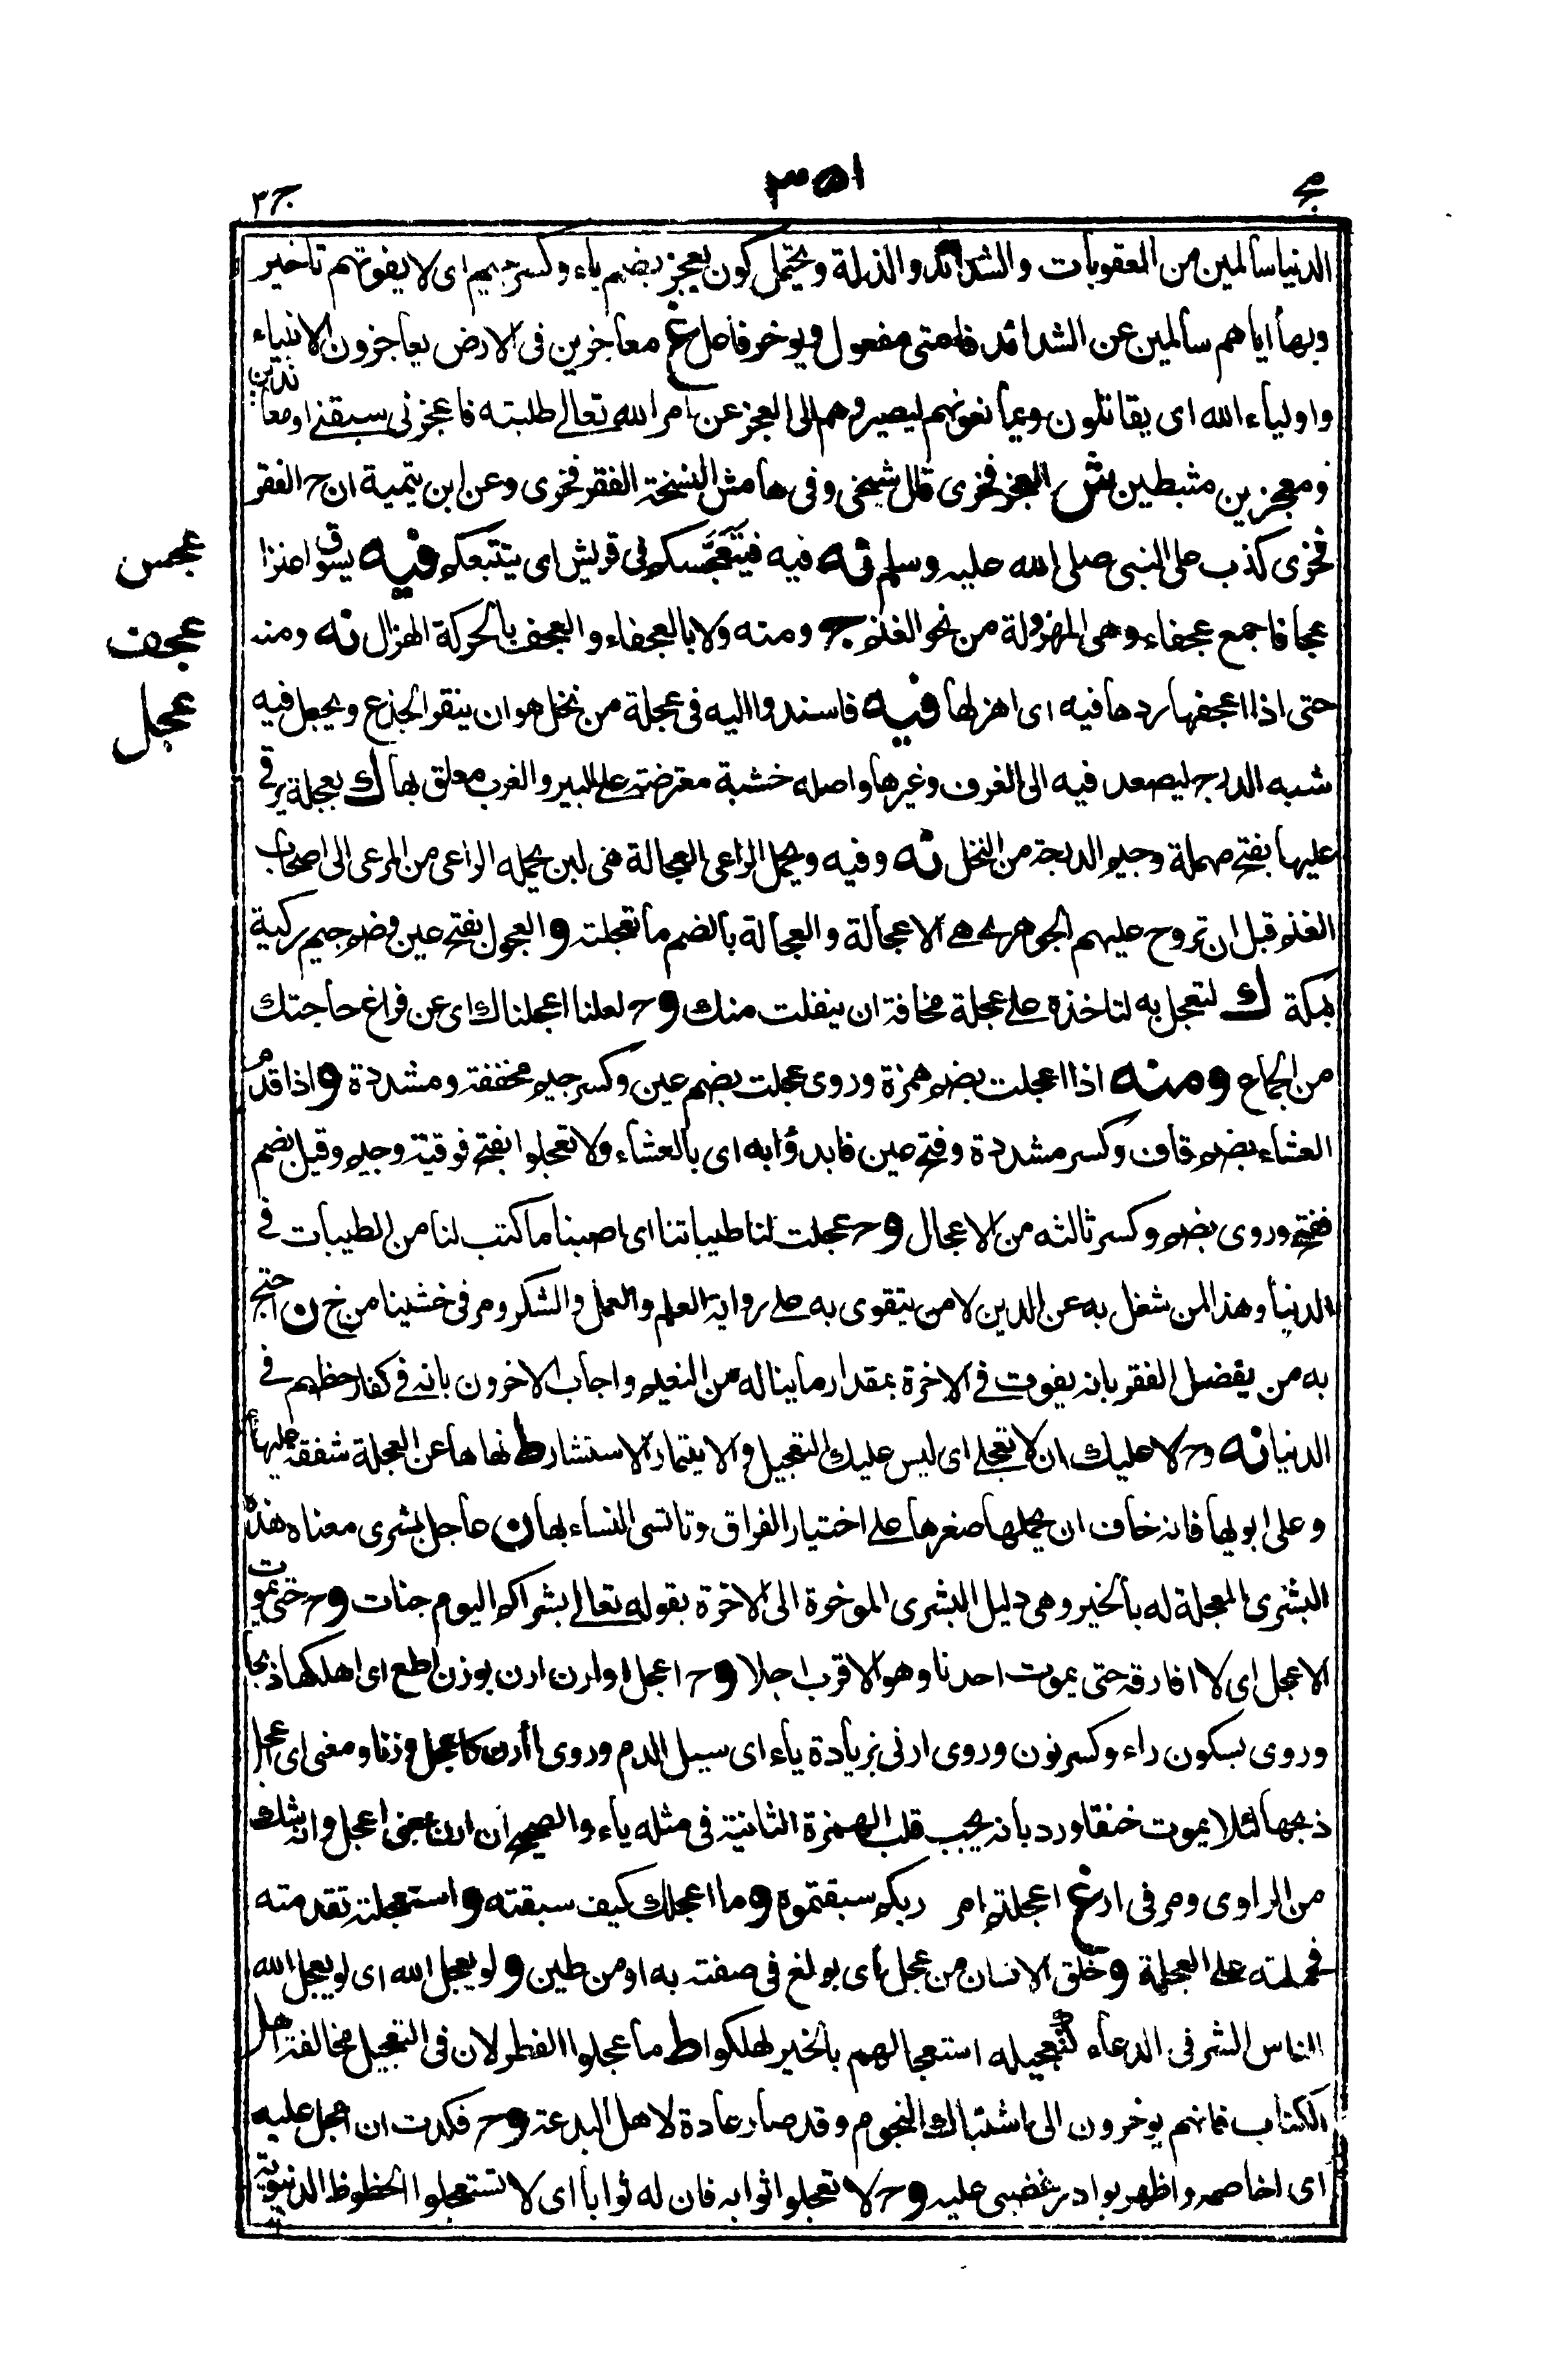 مج ٣٥١ ج٣
الدنيا سالمين من العقوبات والشدائد والذلة ويحتمل كون يعجز بضم ياء وكسر جيم اى لا يفوتهم تأخير
وبها اياهم سالمين عن الشدائد فامتى مفعول ويوخر فاعل غ معاجزين فى الارض يعاجزون الانبياء
واولياء الله اى يقاتلون ويمانعونهم ليصيروهم الى العجز عن امر الله تعالى طلبته فاعجزنى سبقنى او معاندين
ومعجزين مثبطين ش العجز فخرى قال شيخى وفى هامش النسخة الفقر فخرى وعن ابن تيمية ان ح الفقر
فخرى كذب على النبى صلى الله عليه وسلم نه فيه فيتعجسكم فى قريش اى يتتبعكم فيه يسوق اعنزا
عجافا جمع عجفاء وهى المهزولة من نحو الغنم ج ومنه ولا بالعجفاء والعجف بالحركة الهزال نه ومنه
حتى اذا اعجفها ردها فيه اى اهزلها فيه فاسندوا اليه فى عجلة من نخل هو ان ينقر الجذع ويجعل فيه
شبه الدرج ليصعد فيه الى الغرف وغيرها واصله خشبة معترضة على البير والغرب معلق بها ك بعجلة يرقى
عليها بفتح مهملة وجيم الدرجة من النخل نه وفيه ويحمل الراعى العجالة هى لبن يحمله الراعى من المرعى الى اصحاب
الغنم قبل ان تروح عليهم الجوهرى هى الاعجالة والعجالة بالضم ما تعجلته و العجول بفتح عين وضم جيم ركية
بمكة ك لتعجل به لتاخذه على عجلة مخافة ان ينفلت منك و ح لعلنا اعجلناك اى عن فراغ حاجتك
من الجماع ومنه اذا اعجلت بضم همزة وروى عجلت بضم عين وكسر جيم مخففة ومشددة و اذا قدم
العشاء بضم قاف وكسر مشددة وفتح عين فابدؤا به اى بالعشاء ولا تعجلوا بفتح فوقية وجيم وقيل بضم
ففتح وروى بضم وكسر ثالثه من الاعجال و ح عجلت لنا طيباتنا اى اصبنا ما كتب لنا من الطيبات فى
الدنيا وهذا لمن شغل به عن الدين لا من يتقوى به على رواية العلم والعمل والشكر ومر فى خشينا من خ ن احتج
به من يفضل الفقر بانه يفوت فى الاخرة بمقدار ما يناله من النعيم واجاب الاخرون بانه فى كفار حظهم فى
الدنيا نه و ح لا عليك ان لا تعجلى اى ليس عليك التعجيل والايتمار الاستشار ط نهاها عن العجلة شفقة عليها
وعلى ابويها فانه خاف ان يحملها صغرها على اختيار الفراق وتاتسى النساء بها ن عاجل بشرى معناه هذه
البشرى المعجلة له بالخير وهى دليل البشرى الموخرة الى الاخرة بقوله تعالى بشراكم اليوم جنات و ح حتى يموت
الاعجل اى لا افارقه حتى يموت احدنا وهو الاقرب اجلا و ح اعجل او ارن ارن بوزن اطع اى اهلكها ذبحا
وروى بسكون راء وكسر نون وروى ارنى بزيادة ياء اى سيل الدم وروى اأرن كاعجل وزنا ومعنى اى اعجل
ذبحها لئلا يموت خنقا ورد بانه يجب قلب الهمزة الثانية فى مثله ياء والصحيح ان ارن بمعنى اعجل وانه شك
من الراوى ومر فى ار غ اعجلتم امر ربكم سبقتموه و ما اعجلك كيف سبقته و استعجلته تقدمته
فحملته على العجلة و خلق الانسان من عجل اى بولغ فى صفته به او من طين و لو يعجل الله اى لو يعجل الله
الناس الشر فى الدعاء كتعجيله استعجالهم بالخير لهلكوا ط ما عجلوا الفطر لان فى التعجيل مخالفة اهل
الكتاب فانهم يوخرون الى اشتباك النجوم وقد صار عادة لاهل البدعة و ح فكدت ان اعجل عليه
اى اخاصمه واظهر بوادر غضبى عليه و ح لا تعجلوا ثوابه فان له ثوابا اى لا تستعجلوا الحظوظ الدنيوية
عجس
عجف
عجل